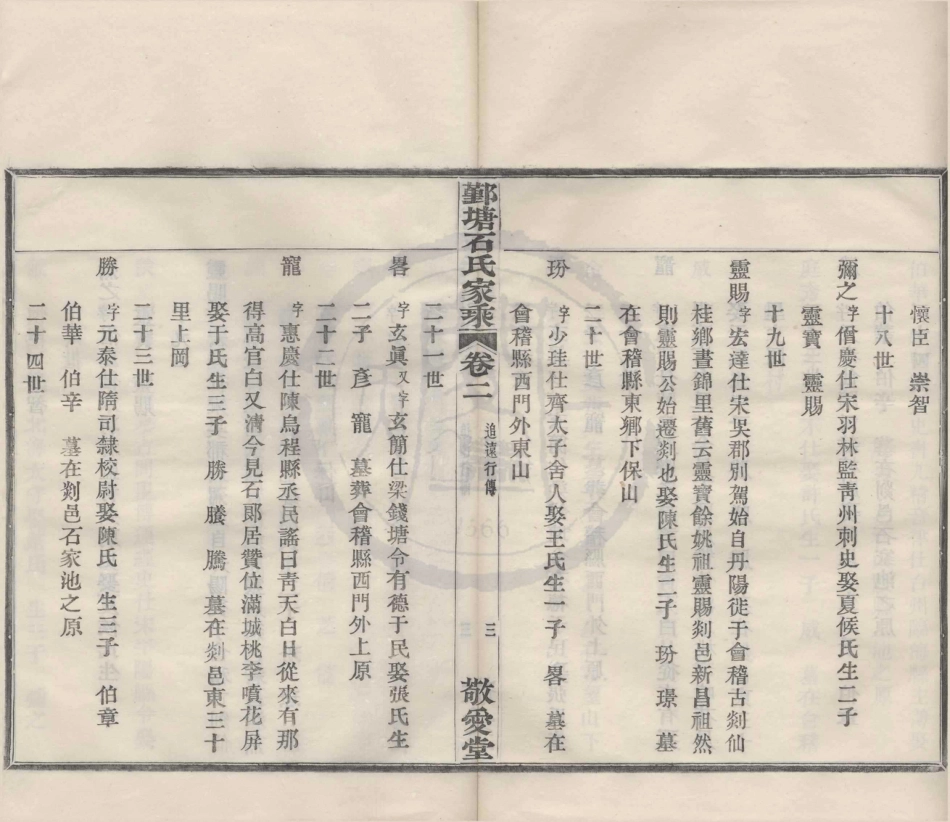 懷臣　崇智
十八世
彌之字僧慶仕宋羽林監靑州刺史娶夏侯氏生二子
靈寶　靈賜
十九世
靈賜字宏達仕宋吳郡別駕始自丹陽徙于會稽古剡仙
桂鄉晝錦里舊云靈寶餘姚祖靈賜剡邑新昌祖然
則靈賜公始遷剡也娶陳氏生二子　玢　璟　墓
在會稽縣東鄉下保山
二十世
玢　字少珪仕齊太子舍人娶王氏生一子　畧　墓在
會稽縣西門外東山
鄞塘石氏家乘　卷二　追遠行傳　三　敬愛堂
二十一世
畧　字玄眞又字玄簡仕梁錢塘令有德于民娶張氏生
二子　彥　寵　墓葬會稽縣西門外上原
二十二世
寵　字惠慶仕陳烏程縣丞民謠曰靑天白日從來有那
得高官白又淸今見石郞居贊位滿城桃李噴花屏
娶于氏生三子　勝　賸　騰　墓在剡邑東三十
里上岡
二十三世
勝　字元泰仕隋司隸校尉娶陳氏生三子　伯章
伯華　伯辛　墓在剡邑石家池之原
二十四世